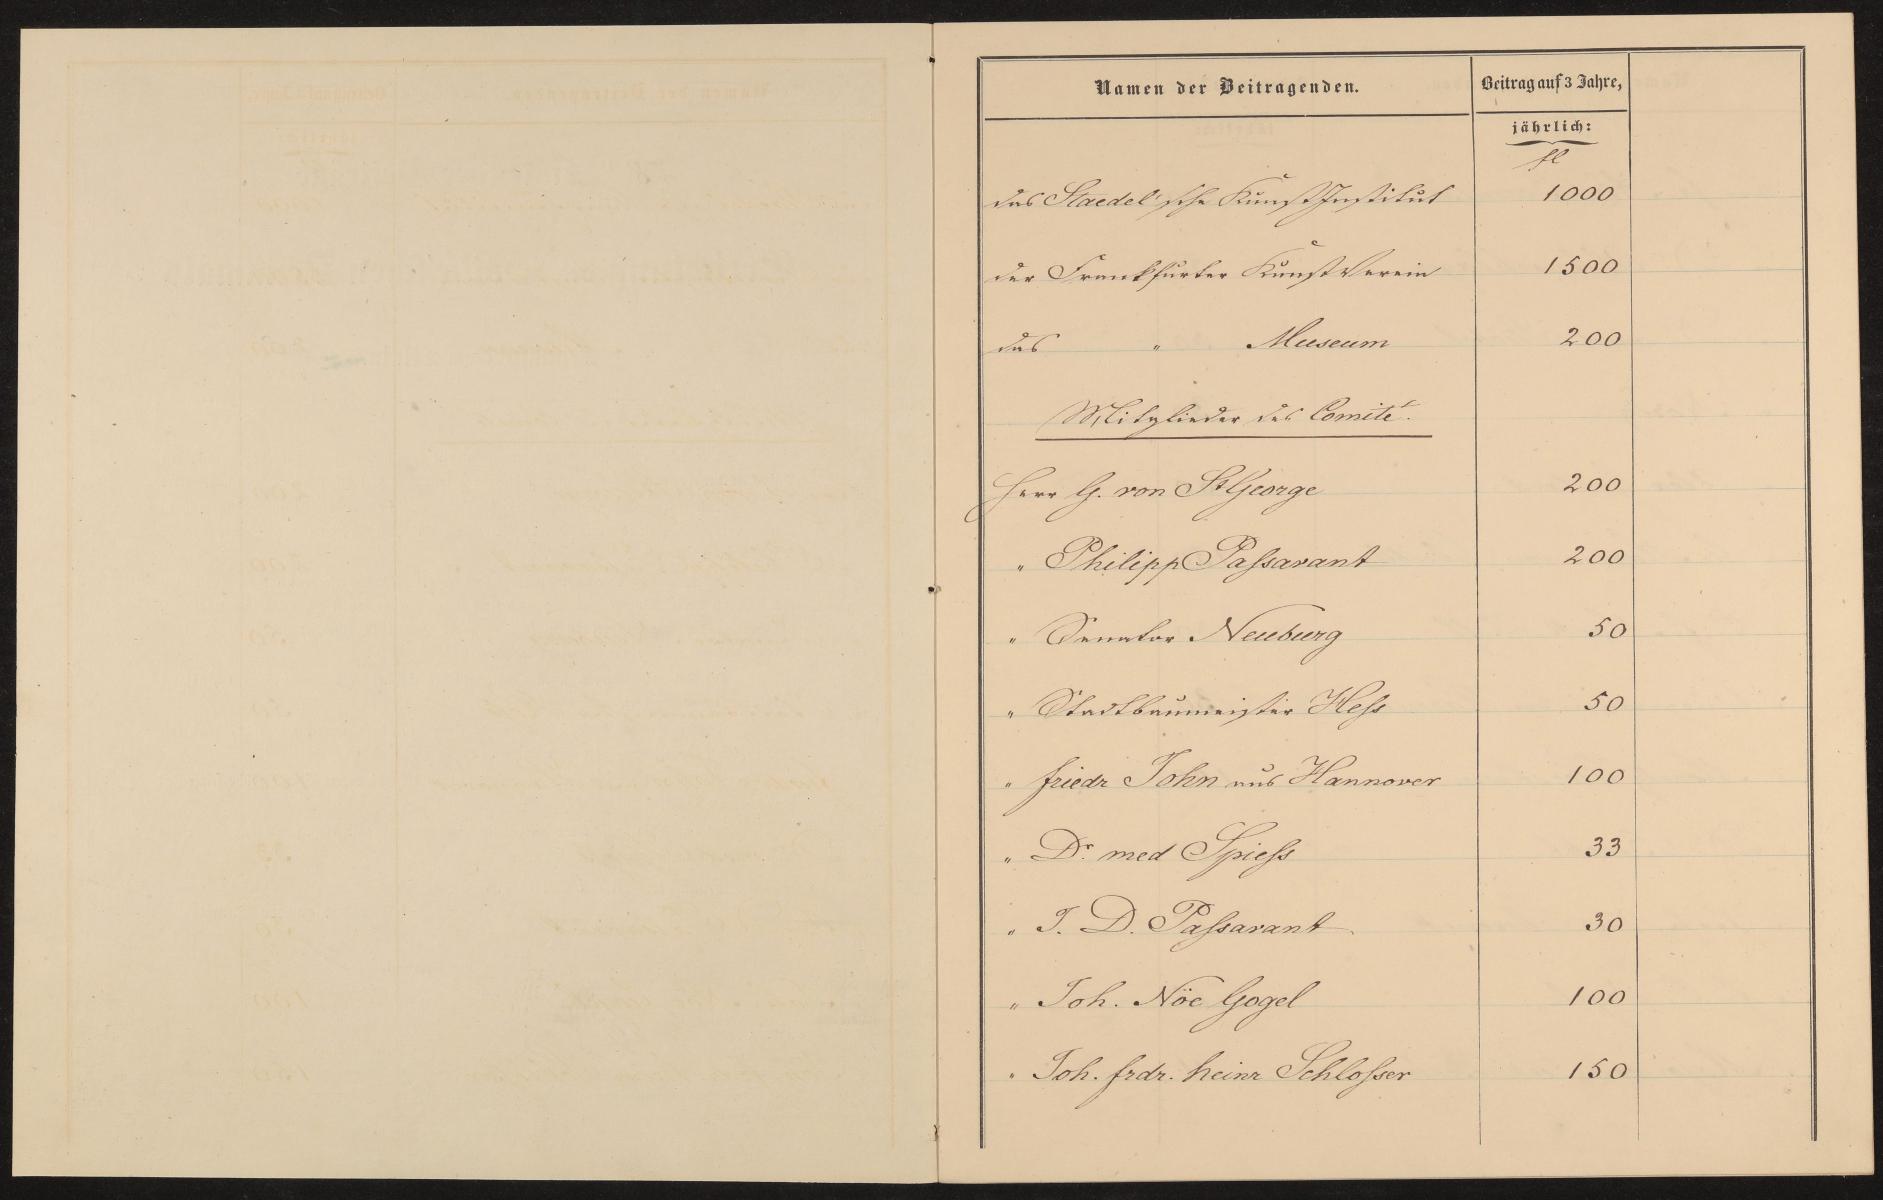 Namen der Beitragenden. Beitrag auf 3 Jahre,
jährlich:
fl
das Staedel'sche Kunst Institut 1000
der Frankfurter Kunst Verein 1500
das " Museum 200
Mitglieder des Comité.
Herr G. von St George 200
" Philipp Passavant 200
" Senator Neuburg 50
" Stadtbaumeister Hess 50
" friedr John aus Hannover 100
" Dr. med Spiess 33
" J. D. Passavant 30
" Joh. Nöe Gogel 100
" Joh. frdr. heinr Schlosser 150